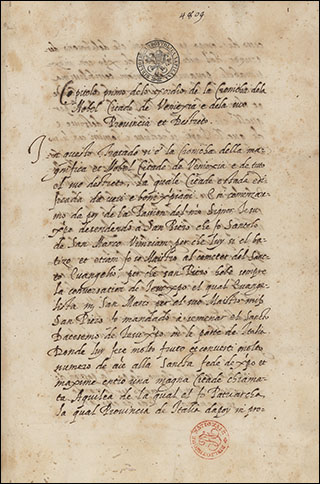 4809
Capitolo primo dela exordio de la Cronicha dela
Nobel Citade de Venexia e dela suo
Provincia et Destreto.
In questo Tractado si è la Cronicha della ma
gnifica et Nobel Citade de Venexia e de tuto
el suo destreto. La qual Citade
ficada da cusi e boni xpiani. Et
da poi de la Passion del no Signor Jesu
xpo desendando a San Piero che fo Sancto
de San Marco Vinician per che luy si el ba
tizo et etiam fo so Maistro al
to Evangelio per che san Piero hebe sempre
la conversation de Jesu xpo el qual Evange
lista m. San Marco per el suo Maistro miss.
San Piero lo mandado a semenar el Sancto
de Jesu xpo in la parte de Italia
Donde luy fece molto fruto et converti molto
numero de a la Sancta fede de xpo et
maxime entro una magna Citade chiama
ta Aquilea de la qual el fo Patriarcha,
la qual Provincia de Italia dapoy in pro-